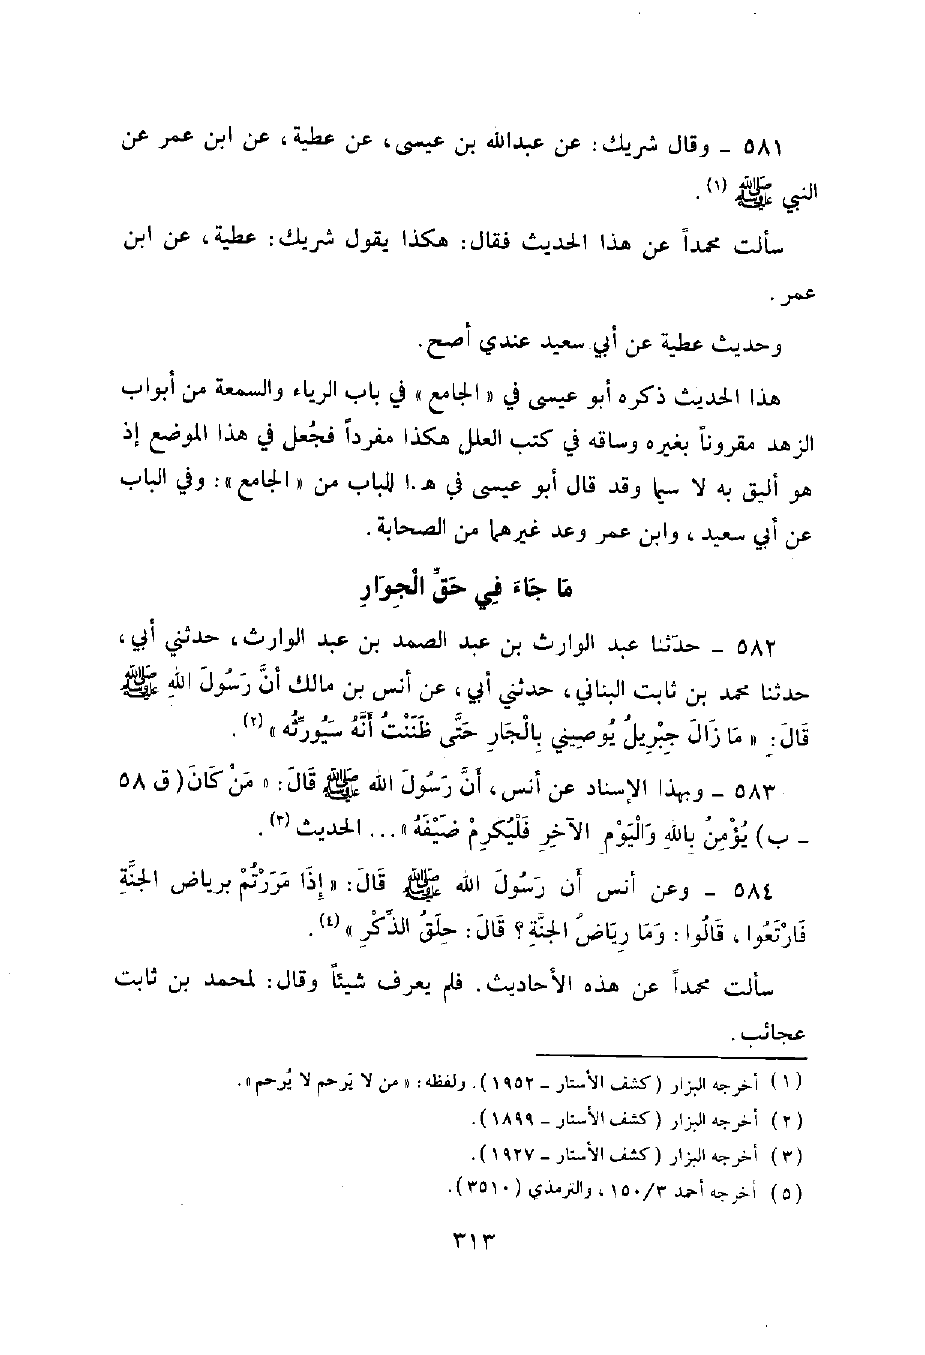 ٥٨١ ـ وقال شريك: عن عبدالله بن عيسى، عن عطية، عن ابن عمر عن
النبي ﷺ (١).
سألت محمداً عن هذا الحديث فقال: هكذا يقول شريك: عطية، عن ابن
عمر.
وحديث عطية عن أبي سعيد عندي أصح.
هذا الحديث ذكره أبو عيسى في « الجامع » في باب الرياء والسمعة من أبواب
الزهد مقروناً بغيره وساقه في كتب العلل هكذا مفرداً فجُعل في هذا الموضع إذ
هو أليق به لا سيما وقد قال أبو عيسى في هـ.ا للباب من « الجامع »: وفي الباب
عن أبي سعيد، وابن عمر وعد غيرهما من الصحابة.
مَا جَاءَ فِي حَقِّ الْجِوَارِ
٥٨٢ ـ حدّثنا عبد الوارث بن عبد الصمد بن عبد الوارث، حدثني أبي،
حدثنا محمد بن ثابت البناني، حدثني أبي، عن أنس بن مالك أنَّ رَسُولَ اللهِ ﷺ
قَالَ: « مَا زَالَ جِبْرِيلُ يُوصِيِنِي بِالْجَارِ حَتَّى ظَنَنْتُ أَنَّهُ سَيُورِّثُه » (٢).
٥٨٣ ـ وبهذا الإسناد عن أنس، أَنَّ رَسُولَ الله ﷺ قَالَ: « مَنْ كَانَ( ق ٥٨
ـ ب) يُؤْمِنُ بِاللهِ وَالْيَوْمِ الآخِرِ فَلْيُكرِمْ ضَيْفَهُ »... الحديث (٣).
٥٨٤ ـ وعن أنس أن رَسُولَ الله ﷺ قَالَ: « إِذَا مَرَرْتُمْ بِرياض الجَنَّةِ
فَارْتَعُوا، قَالُوا: وَمَا رِيَاضُ الجنَّةِ؟ قَالَ: حِلَقُ الذِّكْرِ » (٤).
سألت محمداً عن هذه الأحاديث. فلم يعرف شيئاً وقال: لمحمد بن ثابت
عجائب.
(١) أخرجه البزار (كشف الأستار ـ ١٩٥٢). ولفظه: « من لا يَرحم لا يُرحم ».
(٢) أخرجه البزار (كشف الأستار ـ ١٨٩٩).
(٣) أخرجه البزار (كشف الأستار ـ ١٩٢٧).
(٥) أخرجه أحمد ١٥٠/٣، والترمذي (٣٥١٠).
٣١٣